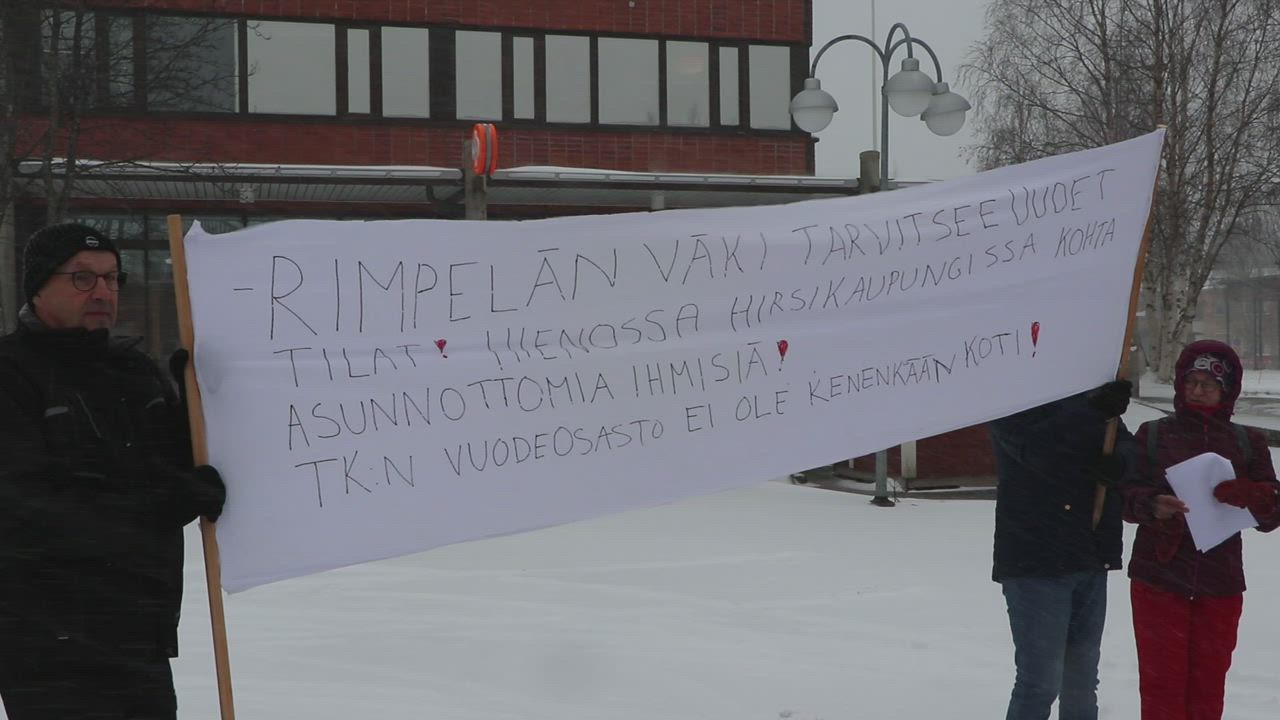 -RIMPELÄN VÄKI TARVITSEE UUDET
TILAT! HIENOSSA HIRSIKAUPUNGISSA KOHTA
ASUNNOTTOMIA IHMISIÄ!
TK:N VUODEOSASTO EI OLE KENENKÄÄN KOTI!